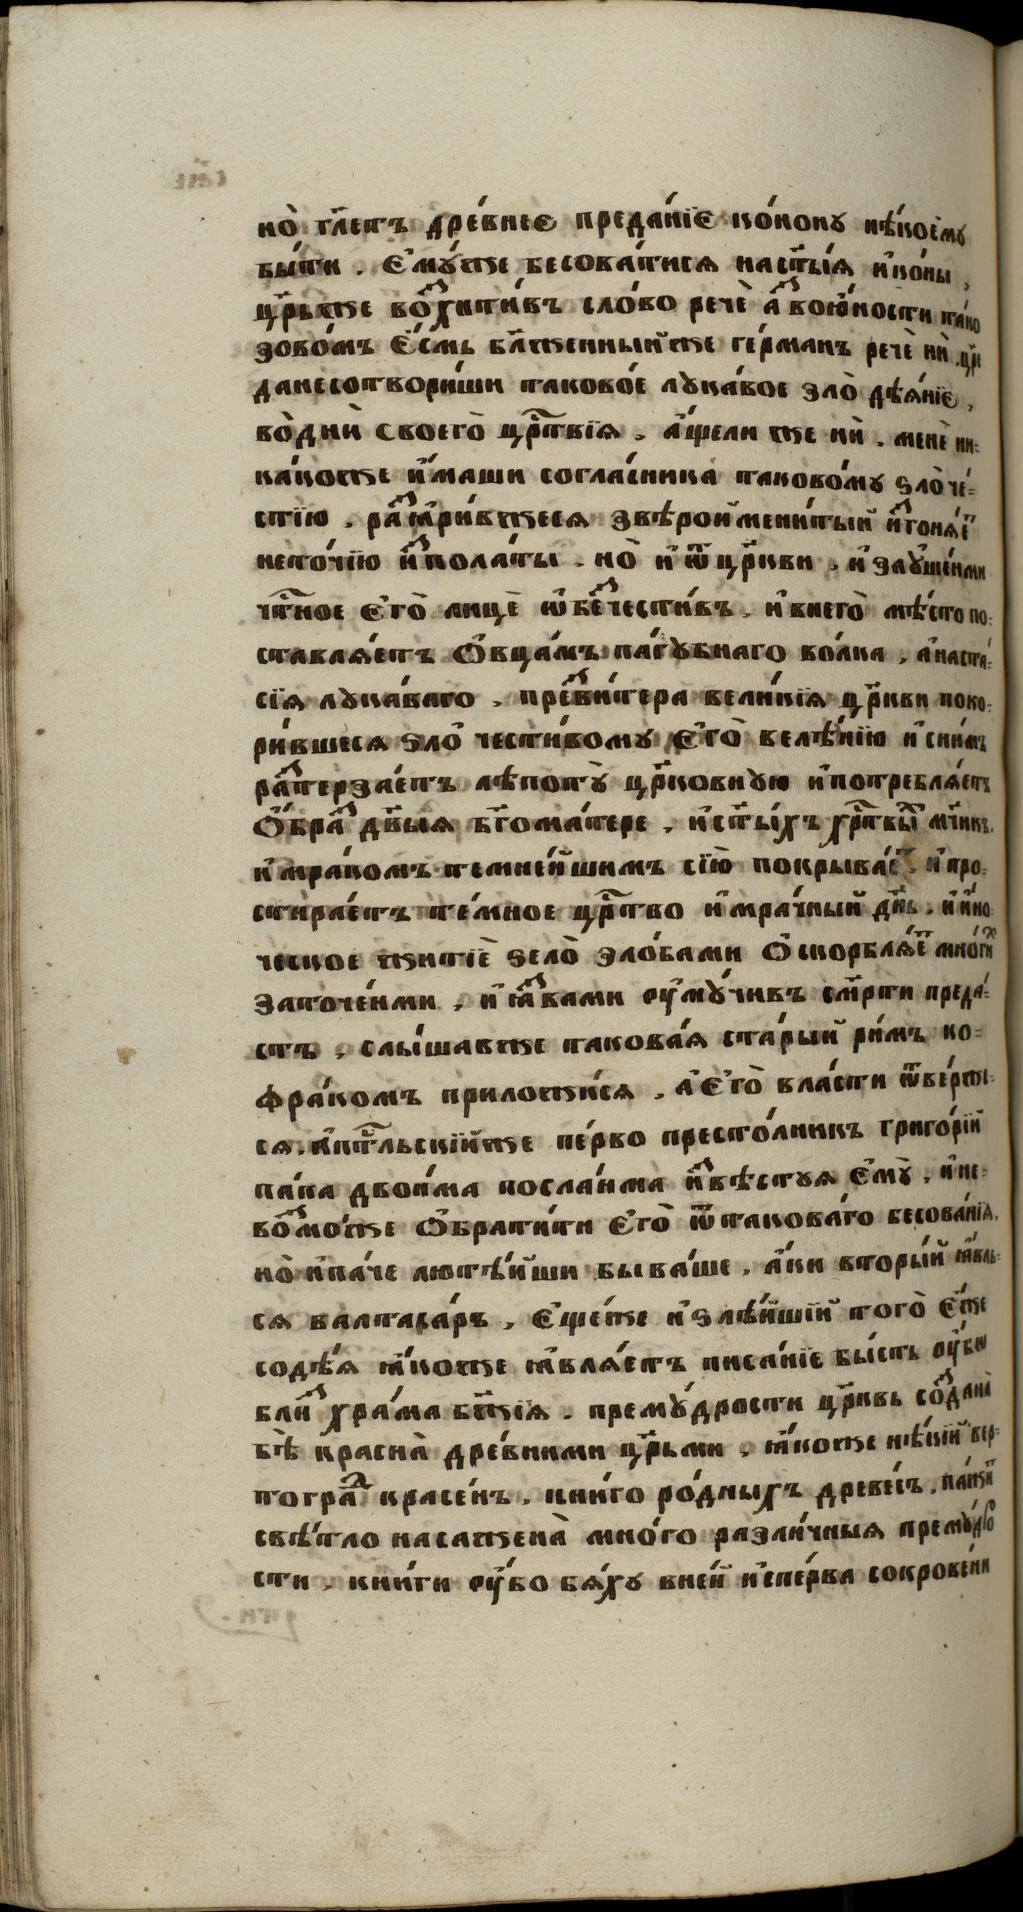 но̀ гл҃етъ дре́внее преда́нїе ко́нону нѣ́коему
бы́ти . Є҆му́же бесова́тися наст҃ы́я и҆ко́ны ,
цр҃ьже воⷥхити́въ сло́во речѐ аⷥ вою҆́ности та́ко
зово́мъ Є҆́смь бл҃женныйже ге́рманъ речѐ нѝ . цр҃е
данесотвори́ши таково́е лука́вое зло̀ дѣ́янїе ,
во̀днѝ своего̀ црⷭ҇твїя . а҆́щели же нѝ . менѐ ни-
ка́коже и҆́маши согла́сника таково́му ѕло̀че́-
стїю . раⷥꙗ҆ри́вжеся звѣрои́мени́тый и҆ⷥгоня́еⷮ
нето́чїю и҆ⷥпола́ты . но̀ и҆ѿ цр҃кви . и҆заꙋше́нми
чⷭ҇тное є҆го̀ лицѐ ѡ҆беⷥчести́въ . и҆внего̀ мѣ́сто по-
ставля́етъ Ѻ҆вца́мъ па́гꙋбнаго во́лка , а҆наста́-
сїя лꙋка́ваго , преⷥви́тера вели́кїя цр҃кви поко-
ри́вшеся ѕло̀ чести́вому є҆го̀ велѣ́нїю и҆сни́мъ
раⷥтерза́етъ лѣ́потꙋ̀ цр҃ковную и҆потребля́етъ
Ѻ҆́браⷥ дв҃ыя бг҃ома́тере , и҆ст҃ы́хъ хрⷭ҇твыⷯ мч҃никъ,
и҆мра́комъ темне́йшимъ сїю̀ покрыва́еⷮ , и҆про-
стира́етъ те́мное црⷭ҇тво и҆мра́чный дн҃ь . и҆и҆́но
ческое житїѐ ѕело̀ зло́бами Ѻ҆скорбля́еⷮ мно́гиⷯ
заточе́нми , и҆ꙗ҆́ⷥвами оу҆мꙋ́чивъ см҃рти преда́-
стъ , слы́шавже такова́я ста́рый ри́мъ ко-
фра́комъ приложи́ся , а҆є҆го̀ вла́сти ѿве́рже-
ся . а҆пⷭ҇тльскїйже пе́рво престо́лникъ григо́рїй
па́па двои́ма посла́нма и҆ⷥвѣ́стꙋя є҆мꙋ̀ , и҆не-
воⷥмо́же Ѻ҆брати́ти є҆го̀ ѿтакова́го бесова́нїя,
но̀ и҆па́че лютѣ́йши быва́ше , а҆́ки вторы́й ꙗ҆́вль-
ся валтаса́ръ , є҆ще́же и҆ѕлѣ́йшїй того̀ є҆́же
содѣ́я ꙗ҆́коже ꙗ҆вля́етъ писа́нїе бы́сть оу҆́бо
блиⷥ хра́ма бж҃їя . премꙋ́дрости цр҃квь соⷥдана̀
бѣ̀ красна̀ дре́вними цр҃ьми , ꙗ҆́коже нѣ́кїй вер-
тограⷣ красе́нъ . кни́го ро́дныхъ древе́съ .
свѣ́тло насажена̀ мно́го разли́чныя премꙋ́дро
сти , кни́ги оу҆́бо бя́хꙋ вне́й и҆спе́рва сокрове́ни